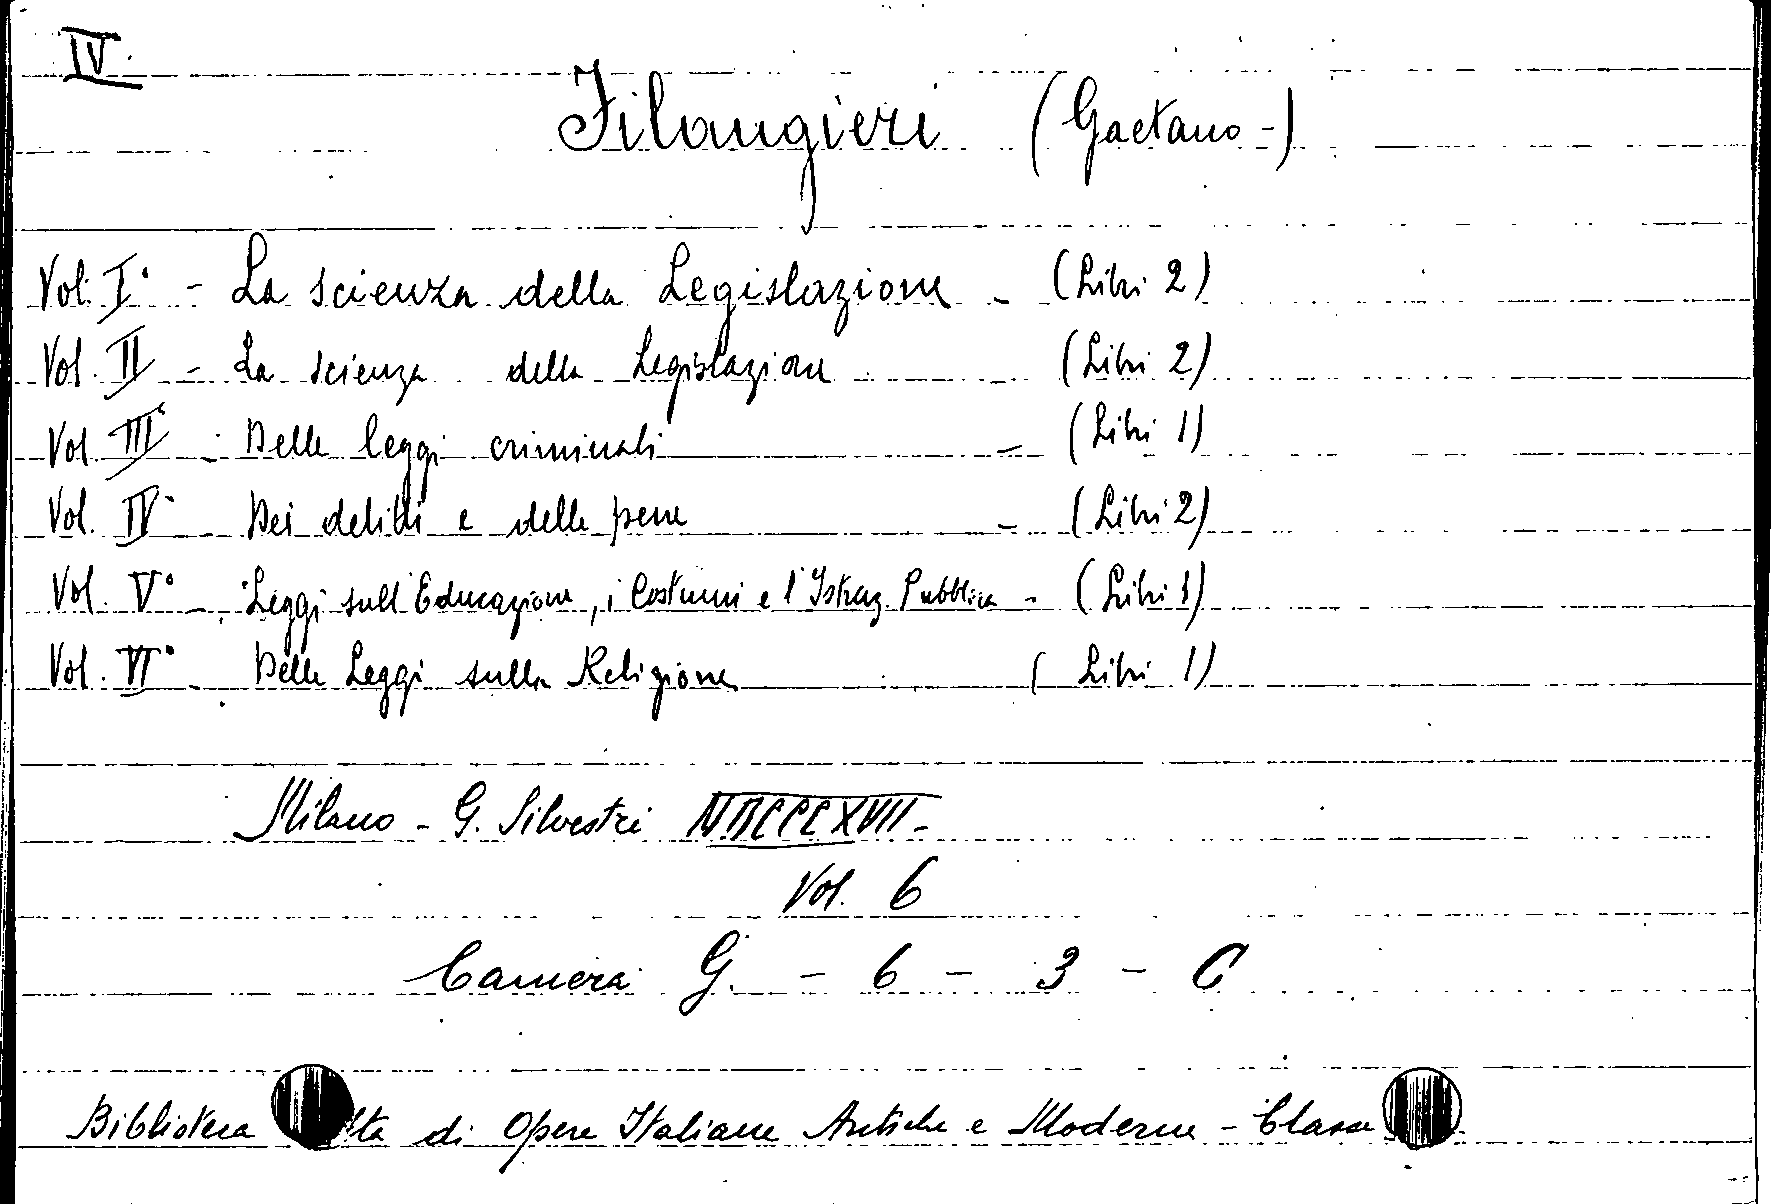 IV
Filangieri (Gaetano -)
Vol. I° - La scienza della Legislazione - (Libri 2)
Vol. II - La scienza della Legislazione (Libri 2)
Vol. III° - Delle leggi criminali - (Libri 1)
Vol. IV° - Dei delitti e delle pene - (Libri 2)
Vol. V° - Leggi sull'Educazione, i Costumi e l'Istruz. Pubblica - (Libri 1)
Vol. VI° - Delle Leggi sulla Religione (Libri 1)
Milano - G. Silvestri MDCCCXVII -
Vol. 6
Camera G. - 6 - 3 - C
Biblioteca lta di Opere Italiane Antiche e Moderne - Classe